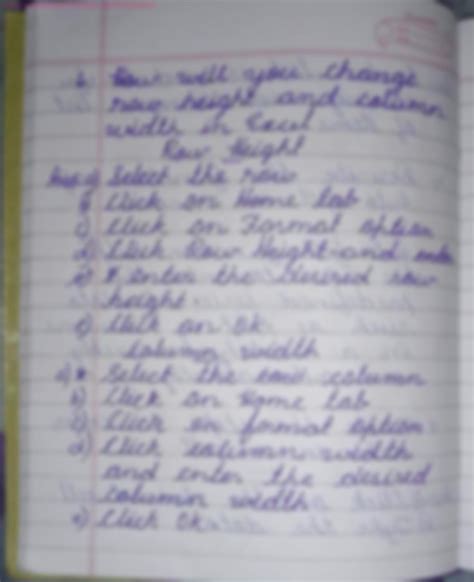 How will you change
row height and column
width in Excel
Row Height
Ans a) Select the row
b) Click on Home tab
c) Click on Format option
d) Click Row Height and enter
e) enter the desired row
height
c) Click on Ok
Column width
a) Select the column
b) Click on Home tab
c) Click on format option
d) Click column width
and enter the desired
column width
e) Click Ok